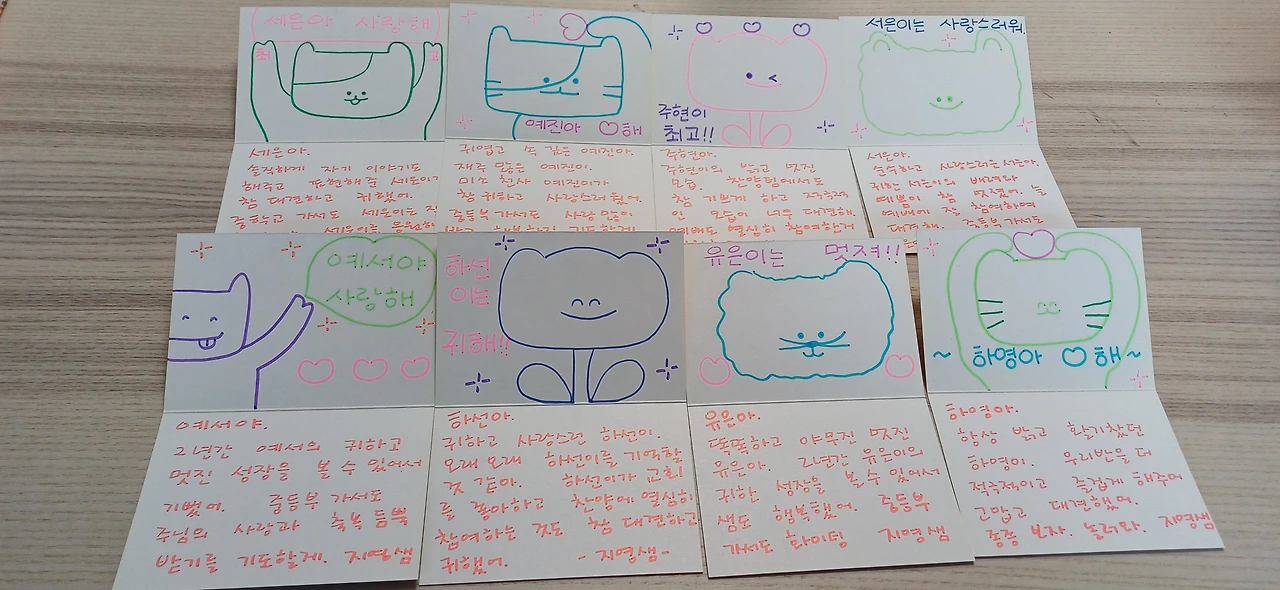 세은아 사랑해
최
고
세은아.
솔직하게 자기 이야기도
해주고 표현해준 세은이가
참 대견하고 귀했어.
중학교 가서도 세은이는
세은이를 응원해
예진아 ♡해
귀엽고 속 깊은 예진아.
재주 많은 예진이.
미소 천사 예진이가
참 귀하고 사랑스러웠어.
중등부 가서도 사랑 많이
받고 행복하길 기도할게
주현이
최고!!
주현아.
주현이의 밝고 멋진
모습. 찬양팀에서도
참 기쁘게 하고 적극적
인 모습이 너무 대견해.
예배도 열심히 참여한거
서은이는 사랑스러워.
서은아.
순수하고 사랑스러운 서은아.
귀한 서은이의 배려와
예쁨이 참 멋졌어. 늘
예배에 잘 참여하여
대견해. 중등부 가서도
예서야
사랑해
예서야.
2년간 예서의 귀하고
멋진 성장을 볼 수 있어서
기뻤어. 중등부 가서도
주님의 사랑과 축복 듬뿍
받기를 기도할게. 지영쌤
하선
이는
귀해!!
하선아.
귀하고 사랑스런 하선이.
오래오래 하선이를 기억할
것 같아. 하선이가 교회
를 좋아하고 찬양에 열심히
참여하는 것도 참 대견하고
귀했어. - 지영쌤 -
유은이는 멋져!!
유은아.
똑똑하고 야무진 멋진
유은아. 2년간 유은이의
귀한 성장을 볼 수 있어서
쌤도 행복했어. 중등부
가서도 화이팅 지영쌤
~ 하영아 ♡해 ~
하영아.
항상 밝고 활기찼던
하영이. 우리반을 더
적극적이고 즐겁게 해주어
고맙고 대견했어.
종종 보자. 놀러와. 지영쌤